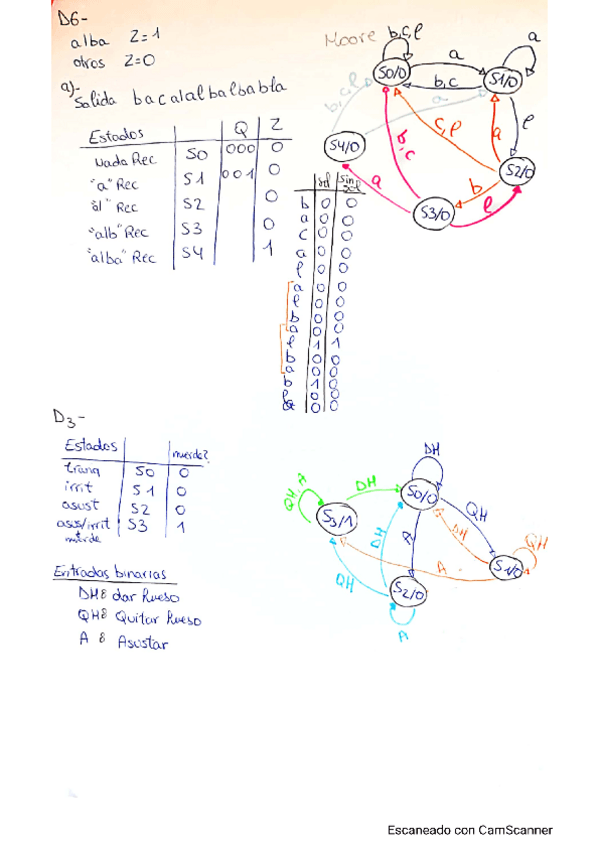 D6-
alba Z=1
otros Z=0
a)- Salida bacalalbalbabla
Estados Q Z
Nada Rec S0 000 0
"a" Rec S1 001 0
"al" Rec S2 0
"alb" Rec S3 0
"alba" Rec S4 1
Moore
b,c,l
a
a
S0/0
S1/0
b,c
b,c,l
a
l
c,l
a
b,c
S4/0
S2/0
a
b
S3/0
l
sol sin sol
b 0 0
a 0 0
c 0 0
a 0 0
l 0 0
a 0 0
l 0 0
b 0 0
a 0 0
l 1 1
b 0 0
a 0 0
b 1 0
l 0 0
a 0 0
D3-
Estados muerde?
tranq S0 0
irrit S1 0
asust S2 0
asus/irrit S3 1
muerde
Entradas binarias
DH: dar Hueso
QH: Quitar Hueso
A: Asustar
DH
DH
S0/0
QH,A
S3/1
QH
DH
QH
A
DH
S1/0
A
QH
S2/0
A
Escaneado con CamScanner